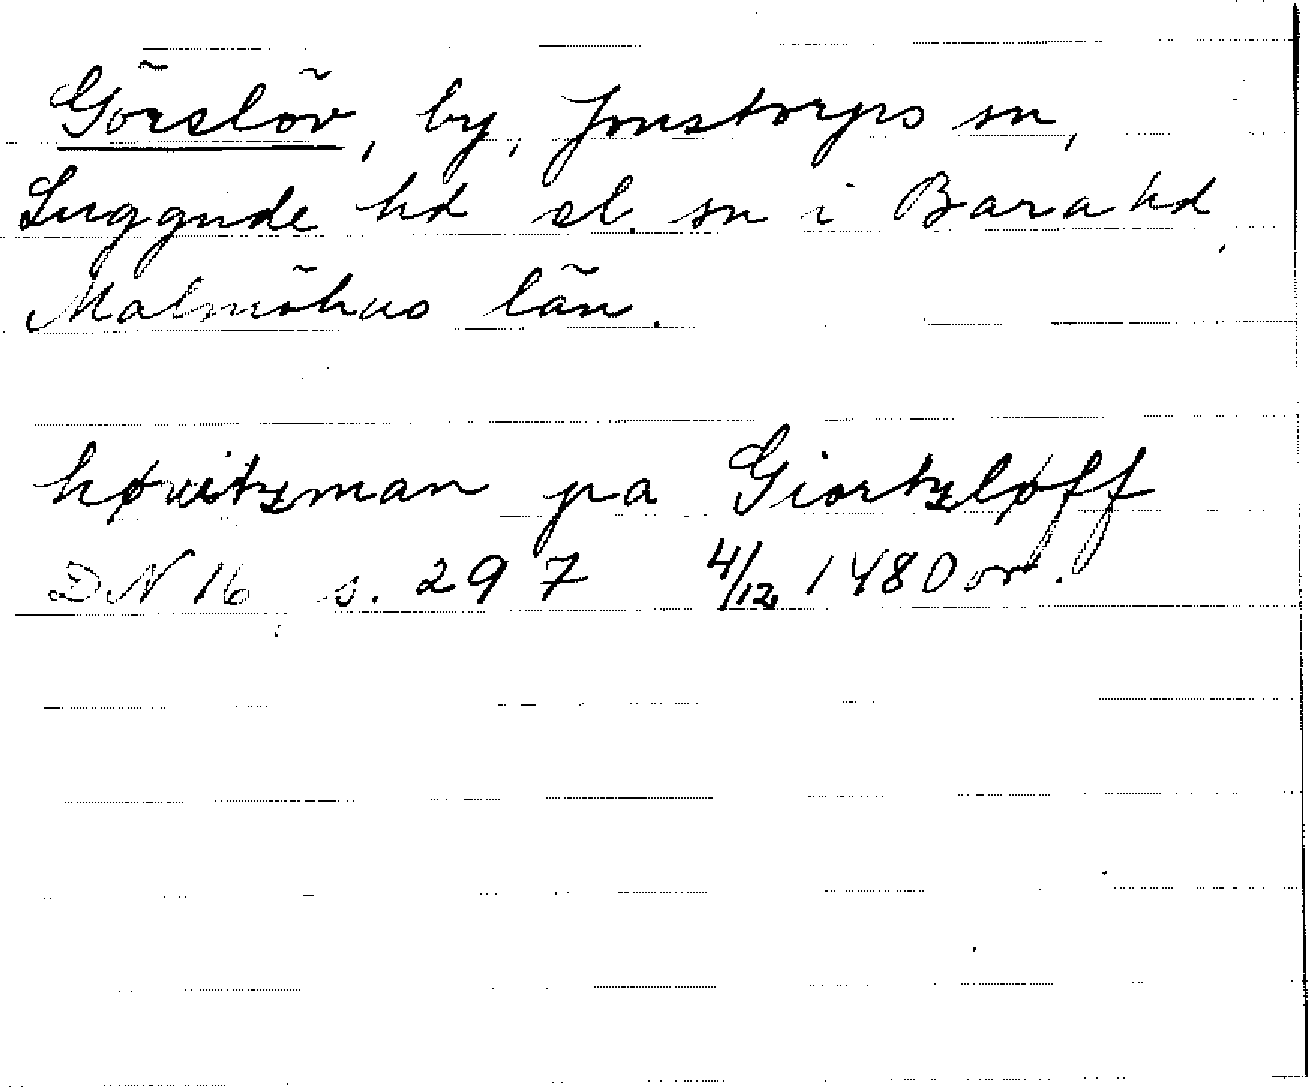 Görslöv, by, Jonstorps sn,
Luggude hd el. sn i Bara hd,
Malmöhus län.
høvitzman pa Giortzløff
DN 16 s. 297 4/12 1480 or.